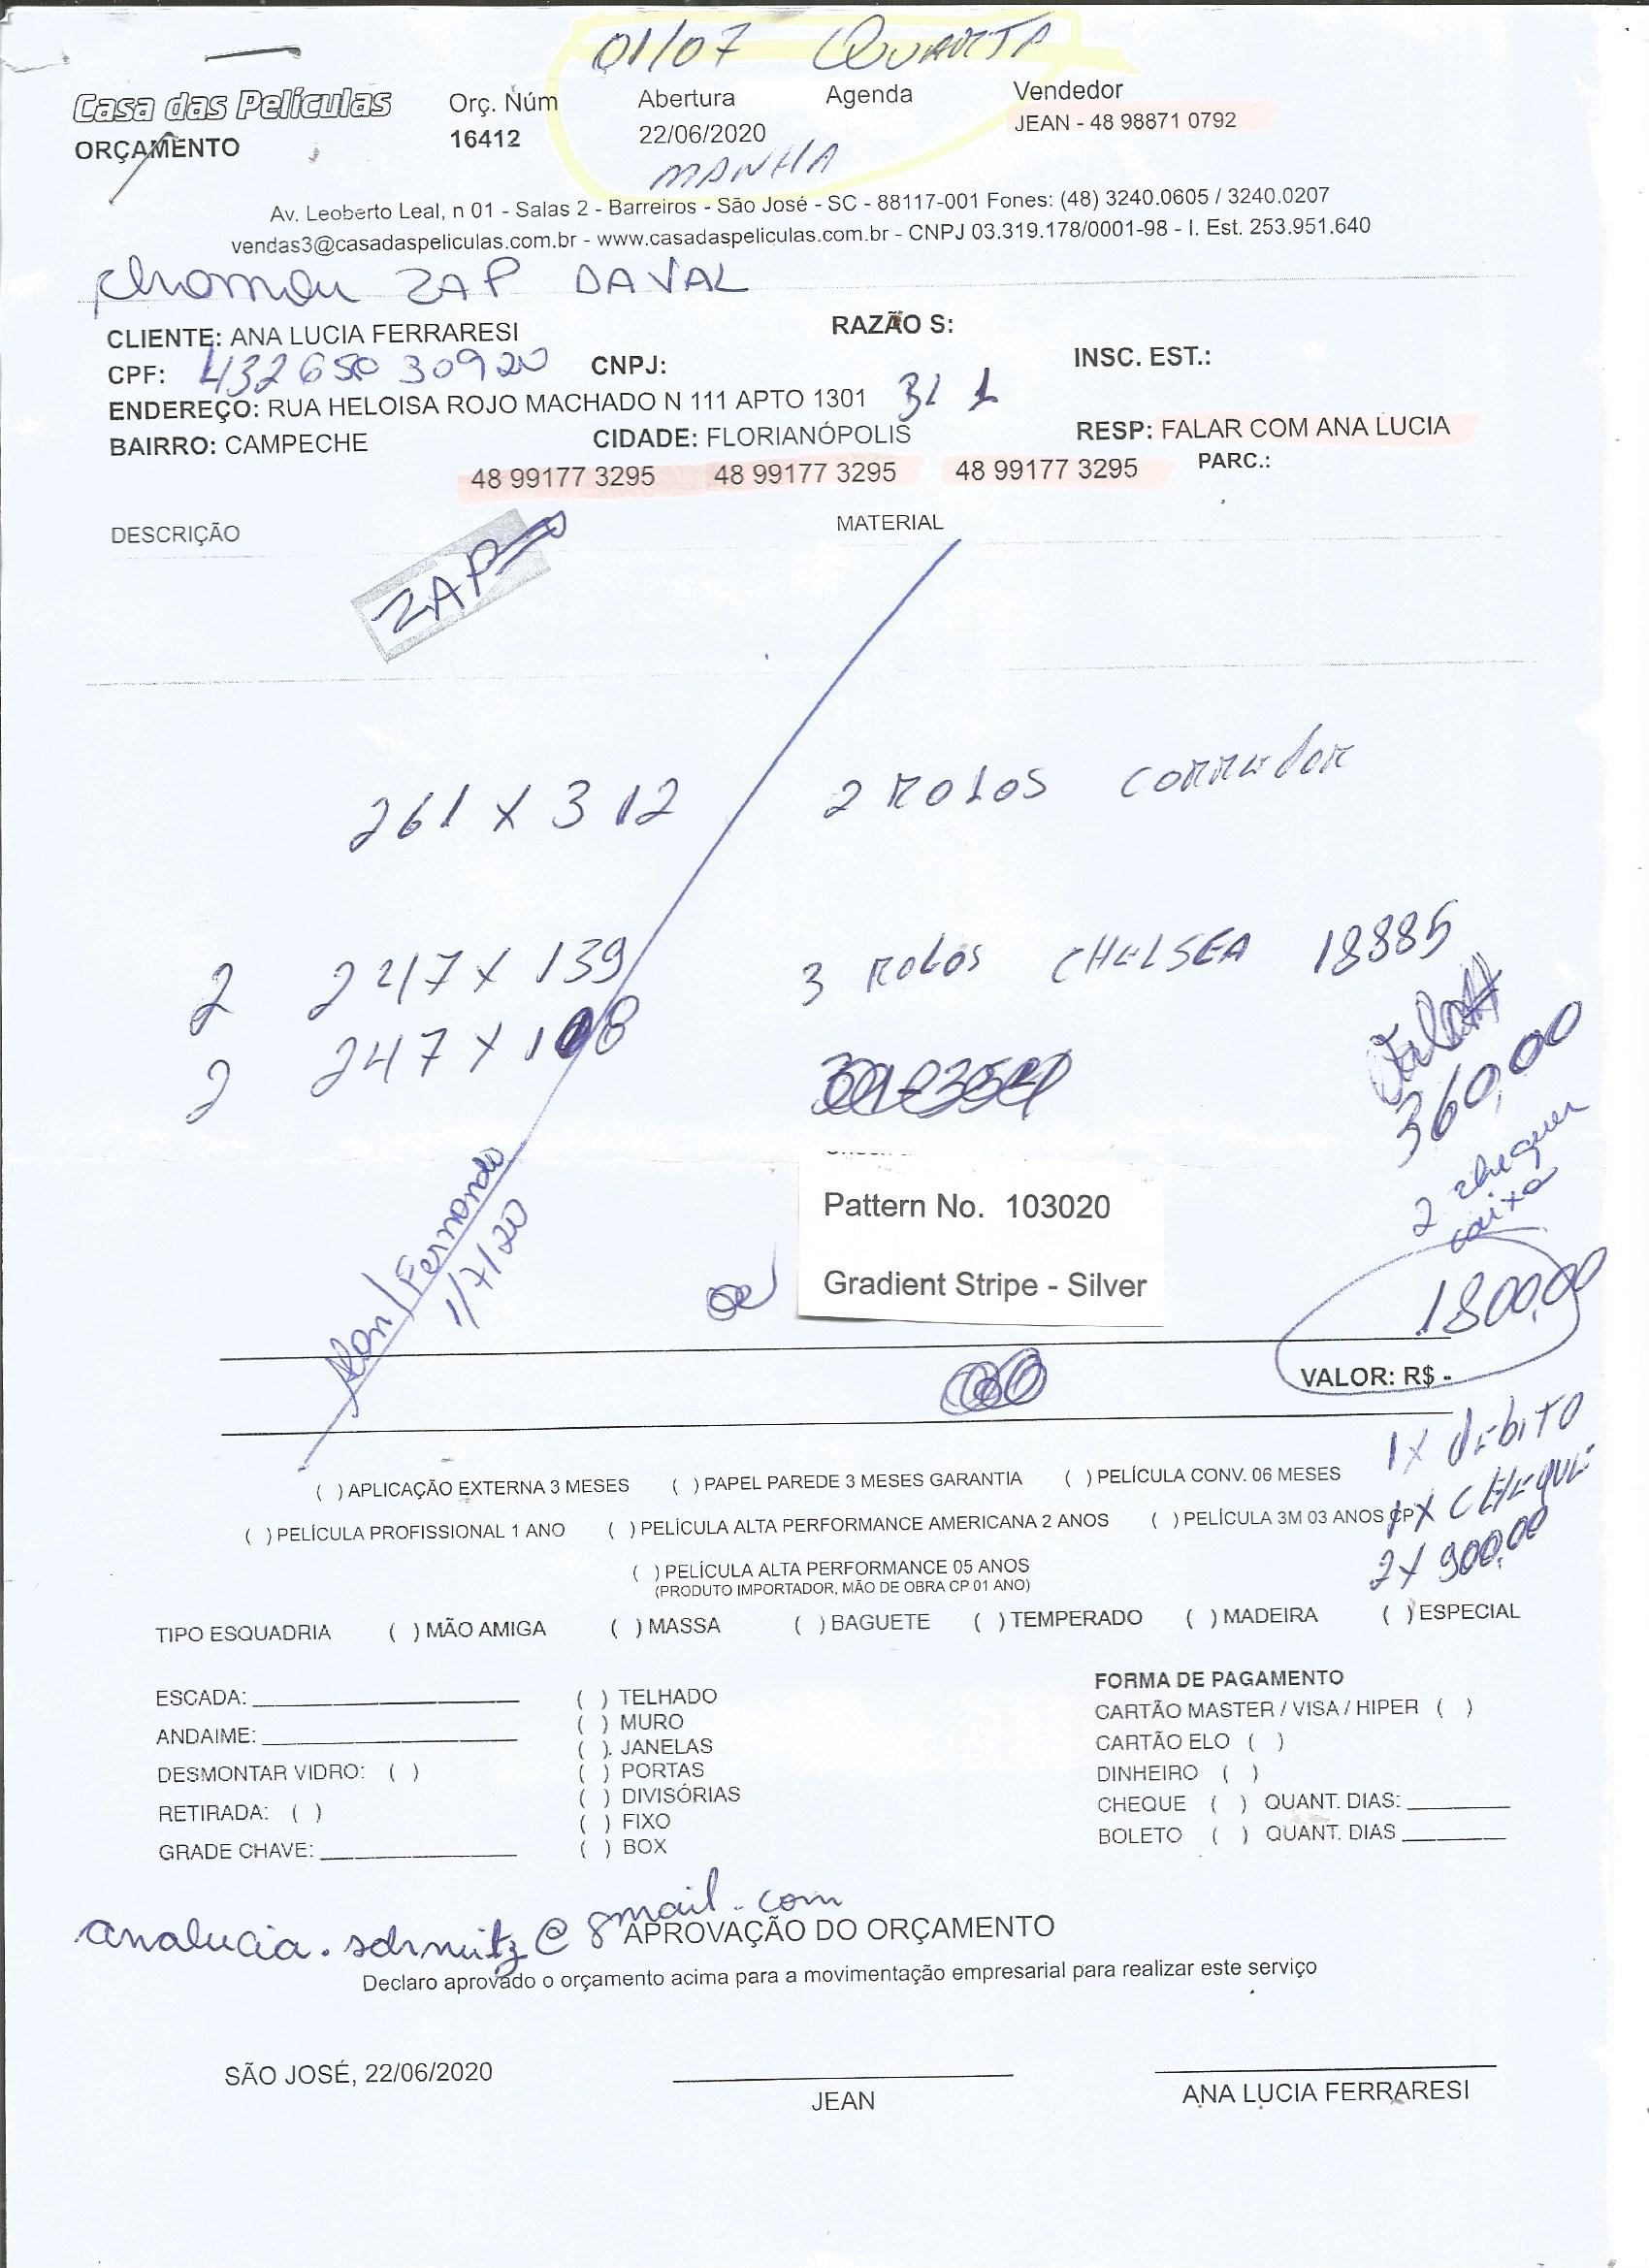 01/07 QUARTA
Casa das Películas Orç. Núm Abertura Agenda Vendedor
ORÇAMENTO 16412 22/06/2020 JEAN - 48 98871 0792
MANHA
Av. Leoberto Leal, n 01 - Salas 2 - Barreiros - São José - SC - 88117-001 Fones: (48) 3240.0605 / 3240.0207
vendas3@casadaspeliculas.com.br - www.casadaspeliculas.com.br - CNPJ 03.319.178/0001-98 - I. Est. 253.951.640
chamou ZAP DAVAL
CLIENTE: ANA LUCIA FERRARESI RAZÃO S:
CPF: 432650 30920 CNPJ: INSC. EST.:
ENDEREÇO: RUA HELOISA ROJO MACHADO N 111 APTO 1301 BL 1
BAIRRO: CAMPECHE CIDADE: FLORIANÓPOLIS RESP: FALAR COM ANA LUCIA
48 99177 3295 48 99177 3295 48 99177 3295 PARC.:
DESCRIÇÃO MATERIAL
ZAP
261 X 312 2 ROLOS CORREDOR
2 247 X 139 3 ROLOS CHELSEA 18885
2 247 X 108
360,00
2 cheques
caixa
Pattern No. 103020
Gradient Stripe - Silver
Alan/Fernando
1/7/20
1800,00
VALOR: R$ -
1X DEBITO
1X CHEQUE
2X 900,00
( ) APLICAÇÃO EXTERNA 3 MESES ( ) PAPEL PAREDE 3 MESES GARANTIA ( ) PELÍCULA CONV. 06 MESES
( ) PELÍCULA PROFISSIONAL 1 ANO ( ) PELÍCULA ALTA PERFORMANCE AMERICANA 2 ANOS ( ) PELÍCULA 3M 03 ANOS CP
( ) PELÍCULA ALTA PERFORMANCE 05 ANOS
(PRODUTO IMPORTADOR, MÃO DE OBRA CP 01 ANO)
TIPO ESQUADRIA ( ) MÃO AMIGA ( ) MASSA ( ) BAGUETE ( ) TEMPERADO ( ) MADEIRA ( ) ESPECIAL
ESCADA:
ANDAIME:
DESMONTAR VIDRO: ( )
RETIRADA: ( )
GRADE CHAVE:
( ) TELHADO
( ) MURO
( ). JANELAS
( ) PORTAS
( ) DIVISÓRIAS
( ) FIXO
( ) BOX
FORMA DE PAGAMENTO
CARTÃO MASTER / VISA / HIPER ( )
CARTÃO ELO ( )
DINHEIRO ( )
CHEQUE ( ) QUANT. DIAS:
BOLETO ( ) QUANT. DIAS
analucia.schmitz@gmail.com
APROVAÇÃO DO ORÇAMENTO
Declaro aprovado o orçamento acima para a movimentação empresarial para realizar este serviço
SÃO JOSÉ, 22/06/2020
JEAN
ANA LUCIA FERRARESI